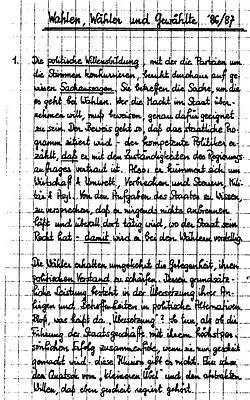 Wahlen, Wähler und Gewählte '86/'87
1. Die politische Willensbildung, mit der die Parteien um
die Stimmen konkurrieren, beruht durchaus auf ge-
wissen Sachaussagen. Sie betreffen die Sache, um die
es geht bei Wahlen. Wer die Macht im Staat über-
nehmen will, muß beweisen, genau dafür geeignet
zu sein. Den Beweis geht so, daß das staatliche Pro-
gramm zitiert wird - der kompetente Politiker er-
zählt, daß er mit den Zuständigkeiten des Regierungs-
auftrages vertraut ist. Also: er kümmert sich um
Wirtschaft & Umwelt, Verbrechen und Steuern, Mili-
tär & Asyl. Von den Aufgaben des Staates zu wissen,
zu versprechen, daß er nirgends nichts anbrennen
läßt und überall dort tätig wird, wo der Staat sein
Recht hat - damit wird er bei den Wählern vorstellig.
Die Wähler erhalten umgekehrt die Gelegenheit, ihren
politischen Verstand zu schärfen. Dessen grundsätz-
liche Leistung besteht in der Übersetzung ihrer An-
liegen und Betroffenheiten in politische Alternativen.
die
Führung der Staatsgeschäfte mit ihrem höchstper-
sönlichen Erfolg zusammenfiele, wenn sie nur gescheit
gemacht wird - diese Illusion gibt es nicht.
den vom "kleineren Übel" und den abstrakten
Willen, daß eben gescheit regiert gehört.